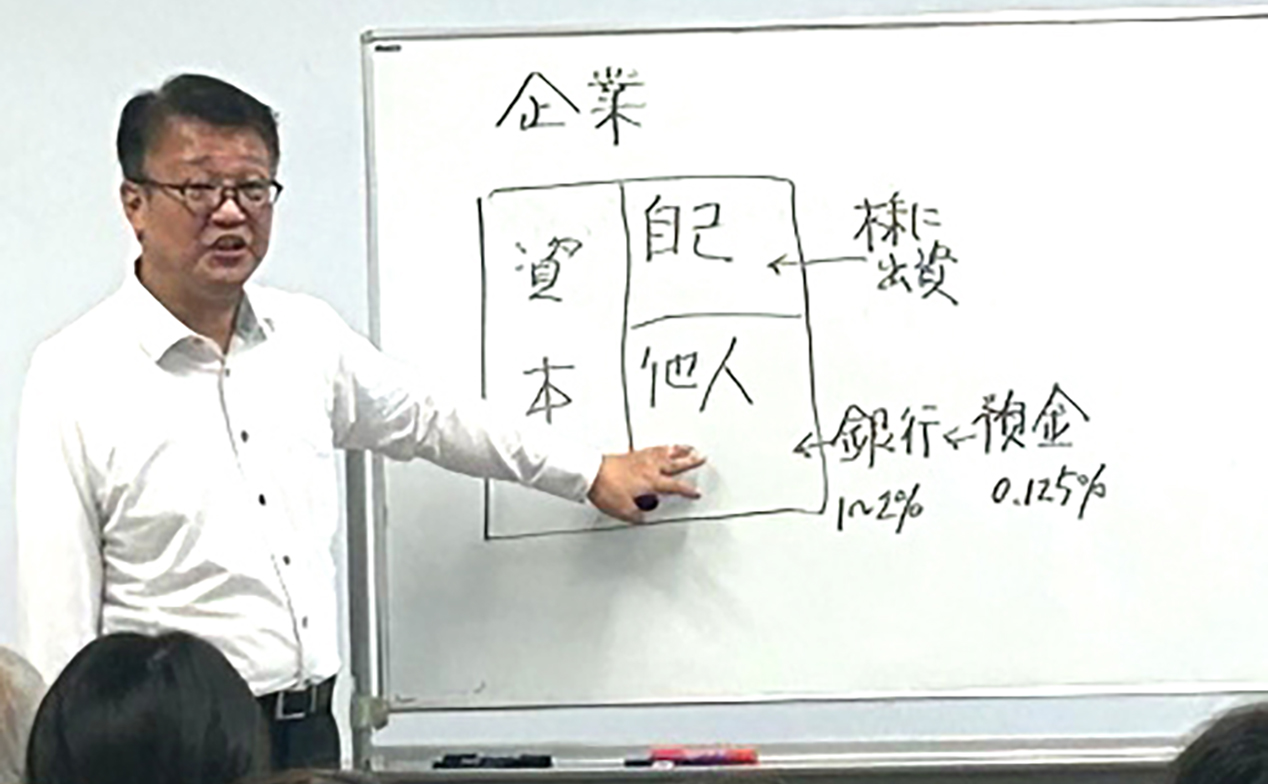 企業
資本
自己
他人
株に
出資
銀行
預金
1~2%
0.125%